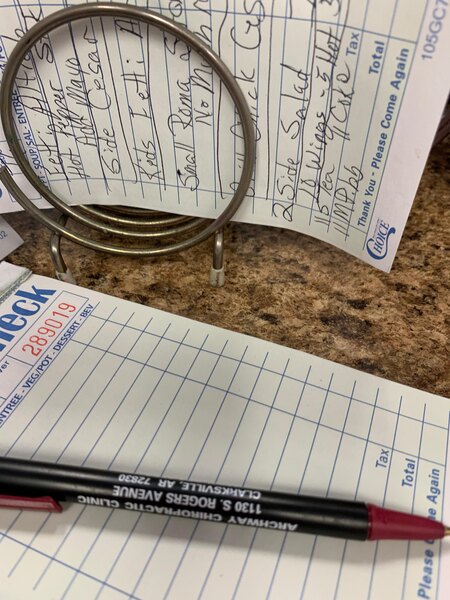 SOUP/SAL- ENTREE
Hot Ham Mayo
Side Cesar
Kids Fetti A
Small Roma S
No Mush
Chick Ces
2 Side Salad
10 Wings - S Hot S
115 Tea 11 Coke
11MPib
Tax
Total
Thank You - Please Come Again
CHOICE
105GC7
02
heck
289019
ver
NTREE - VEG/POT - DESSERT - BEV
Tax
Total
Please Come Again
ARCHWAY CHIROPRACTIC CLINIC
1130 S. ROGERS AVENUE
CLARKSVILLE, AR 72830